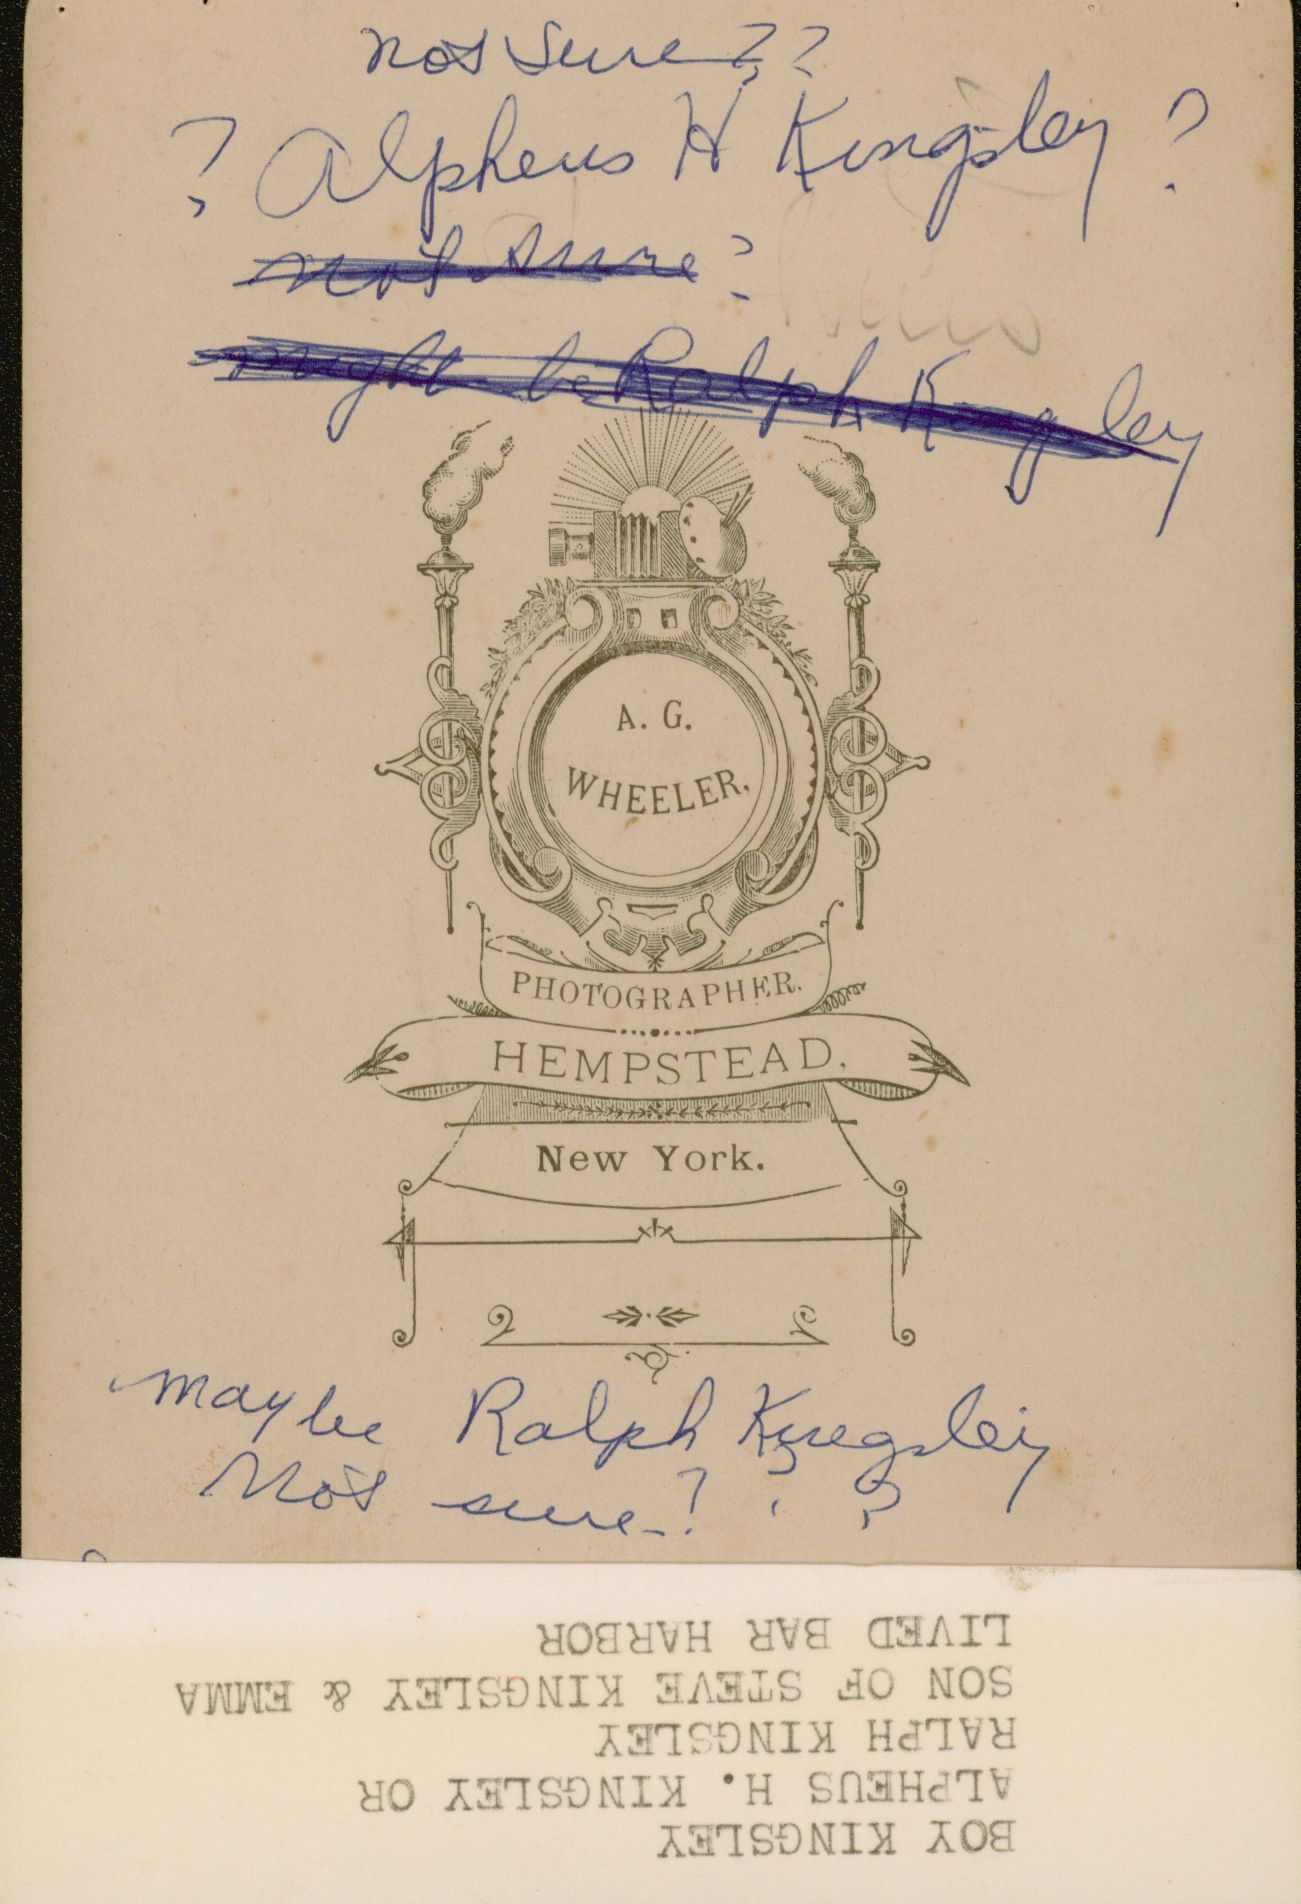 not sure??
? Alpheus H Kingsley ?
not sure?
might be Ralph Kingsley
A. G.
WHEELER.
PHOTOGRAPHER.
HEMPSTEAD,
New York.
maybe Ralph Kingsley
Not sure? ? ?
BOY KINGSLEY
ALPHEUS H. KINGSLEY OR
RALPH KINGSLEY
SON OF STEVE KINGSLEY & EMMA
LIVED BAR HARBOR